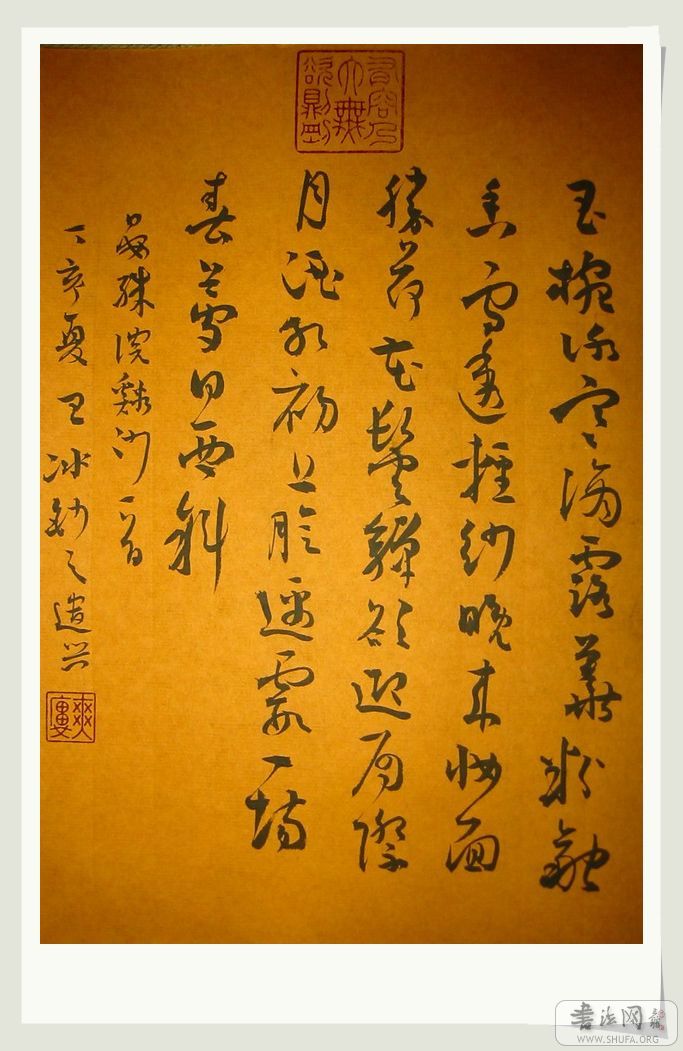 有容乃大無欲則剛
玉椀冰寒滴露華粉融
香雪透輕紗晚來妝面
勝荷花鬢嚲欲迎眉際
月酒紅初上臉邊霞一場
春夢日西斜
晏殊浣谿沙一首
丁亥夏王冰鈔之遣興
書法网
WWW.SHUFA.ORG